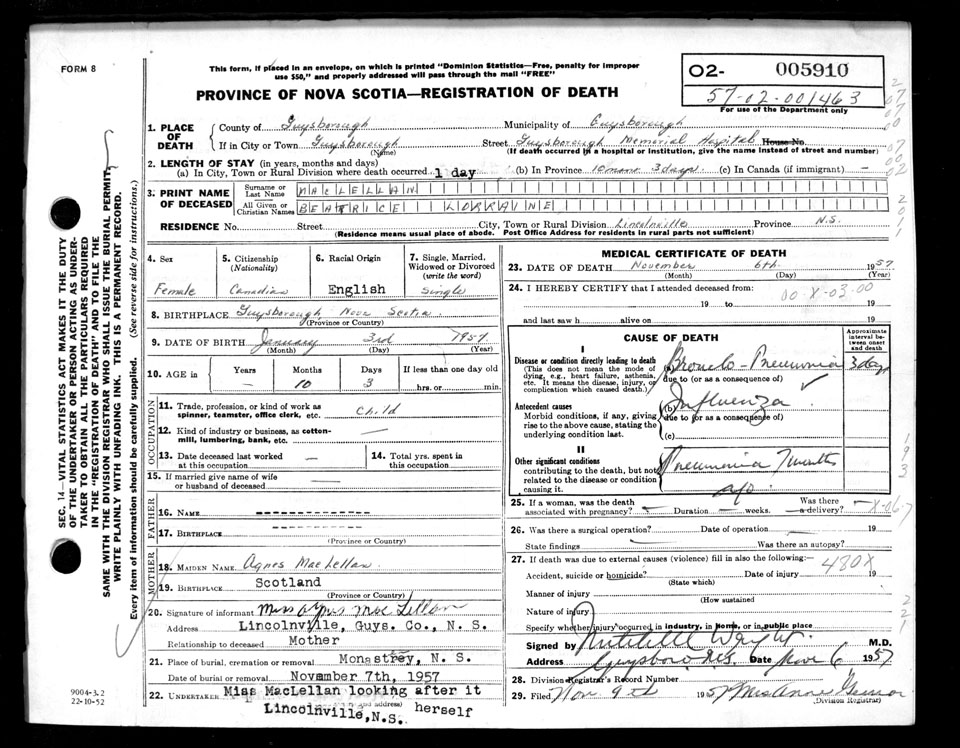 FORM 8
This form, if placed in an envelope, on which is printed "Dominion Statistics—Free, penalty for improper
use $50," and properly addressed will pass through the mail "FREE"
PROVINCE OF NOVA SCOTIA—REGISTRATION OF DEATH
O2- 005910
57-02-001463
For use of the Department only
1. PLACE OF DEATH
County of Guysborough Municipality of Guysborough
If in City or Town Guysborough Street Guysborough Memorial Hospital House No.
(Name) (If death occurred in a hospital or institution, give the name instead of street and number)
2. LENGTH OF STAY (in years, months and days)
(a) In City, Town or Rural Division where death occurred 1 day (b) In Province 10 mons 3 days (c) In Canada (if immigrant) —
3. PRINT NAME OF DECEASED
Surname or Last Name MACLELLAN
All Given or Christian Names BEATRICE LORRAINE
RESIDENCE No. Street City, Town or Rural Division Lincolnville Province N.S.
(Residence means usual place of abode. Post Office Address for residents in rural parts not sufficient)
4. Sex 5. Citizenship (Nationality) 6. Racial Origin 7. Single, Married, Widowed or Divorced (write the word)
Female Canadian English Single
8. BIRTHPLACE Guysborough, Nova Scotia
(Province or Country)
9. DATE OF BIRTH January 3rd 1957
(Month) (Day) (Year)
10. AGE in Years Months Days If less than one day old
— 10 3 hrs. or min.
OCCUPATION
11. Trade, profession, or kind of work as spinner, teamster, office clerk, etc. child
12. Kind of industry or business, as cotton-mill, lumbering, bank, etc. —
13. Date deceased last worked at this occupation — 14. Total yrs. spent in this occupation
15. If married give name of wife or husband of deceased —
FATHER
16. NAME
17. BIRTHPLACE
(Province or Country)
MOTHER
18. MAIDEN NAME Agnes MacLellan
19. BIRTHPLACE Scotland
(Province or Country)
20. Signature of informant Miss Agnes MacLellan
Address Lincolnville, Guys. Co., N. S.
Relationship to deceased Mother
21. Place of burial, cremation or removal Monastrey, N. S.
Date of burial or removal November 7th, 1957
22. UNDERTAKER Miss MacLellan looking after it
(Name and address) herself
Lincolnville, N.S.
MEDICAL CERTIFICATE OF DEATH
23. DATE OF DEATH November 6th 1957
(Month) (Day) (Year)
24. I HEREBY CERTIFY that I attended deceased from:
00-X-03-00
19 to 19
and last saw h alive on 19
CAUSE OF DEATH
Approximate interval between onset and death
I
Disease or condition directly leading to death
(This does not mean the mode of dying, e.g., heart failure, asthenia, etc. It means the disease, injury, or complication which caused death.)
Broncho-Pneumonia 3 days
due to (or as a consequence of)
Antecedent causes
Morbid conditions, if any, giving rise to the above cause, stating the underlying condition last.
(b) Influenza
due to (or as a consequence of)
(c)
II
Other significant conditions
contributing to the death, but not related to the disease or condition causing it.
Pneumonia 7 months
ago.
25. If a woman, was the death associated with pregnancy? — Duration weeks. Was there a delivery? —
X-06-7
26. Was there a surgical operation? Date of operation 19
State findings Was there an autopsy?
27. If death was due to external causes (violence) fill in also the following:—
480X
Accident, suicide or homicide? Date of injury 19
(State which)
Manner of injury
(How sustained
Nature of injury
Specify whether injury occurred in industry, in home, or in public place
Signed by M.D.
Address Guysboro N.S. Date Nov 6, 1957
28. Division Registrar's Record Number
29. Filed Nov. 9th 1957 Mrs Anne
(Division Registrar)
9004-3.2
22-10-52
SEC. 14—VITAL STATISTICS ACT MAKES IT THE DUTY
OF THE UNDERTAKER OR PERSON ACTING AS UNDER-
TAKER TO OBTAIN ALL THE PARTICULARS REQUIRED
IN THE "REGISTRATION OF DEATH" AND TO FILE THE
SAME WITH THE DIVISION REGISTRAR WHO SHALL ISSUE THE BURIAL PERMIT.
WRITE PLAINLY WITH UNFADING INK. THIS IS A PERMANENT RECORD.
Every item of information should be carefully supplied. (See reverse side for instructions.)